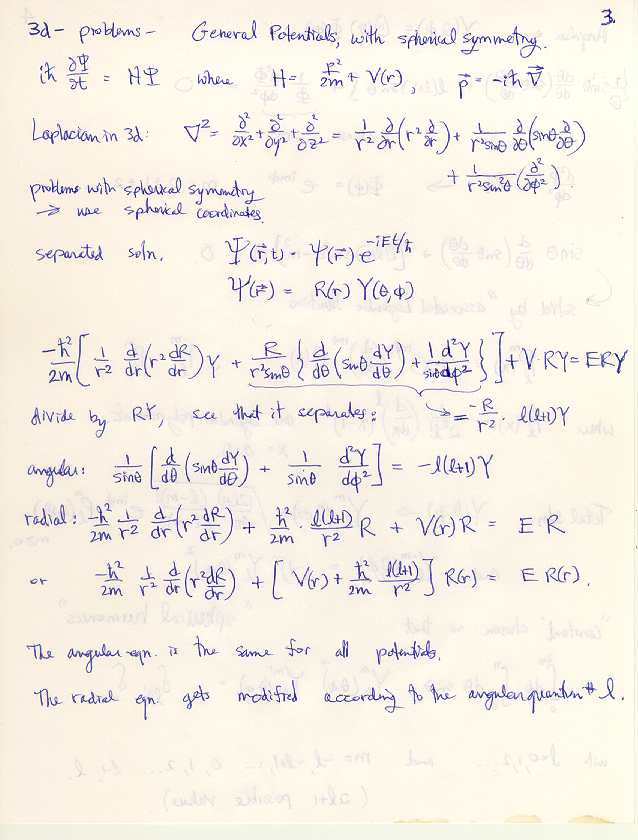 3.
3d - problems - General Potentials, with spherical symmetry.
iħ ∂Ψ/∂t = HΨ where H = p²/2m + V(r), p⃗ = -iħ ∇⃗
Laplacian in 3d: ∇² = ∂²/∂x² + ∂²/∂y² + ∂²/∂z² = 1/r² ∂/∂r (r² ∂/∂r) + 1/(r² sinθ) ∂/∂θ (sinθ ∂/∂θ)
+ 1/(r² sin²θ) (∂²/∂φ²).
problems with spherical symmetry
→ use spherical coordinates.
separated soln. Ψ(r⃗,t) = ψ(r⃗) e^{-iEt/ħ}
ψ(r⃗) = R(r) Y(θ,φ)
-ħ²/2m [ 1/r² d/dr (r² dR/dr) Y + R/(r² sinθ) { d/dθ (sinθ dY/dθ) + 1/sinθ d²Y/dφ² } ] + V·RY = ERY
divide by RY, see that it separates: ↳ = -R/r² · l(l+1)Y
angular: 1/sinθ [ d/dθ (sinθ dY/dθ) + 1/sinθ d²Y/dφ² ] = -l(l+1)Y
radial: -ħ²/2m 1/r² d/dr (r² dR/dr) + ħ²/2m · l(l+1)/r² R + V(r)R = ER
or -ħ²/2m 1/r² d/dr (r² dR/dr) + [ V(r) + ħ²/2m l(l+1)/r² ] R(r) = E R(r).
The angular eqn. is the same for all potentials.
The radial eqn. gets modified according to the angular quantum # l.